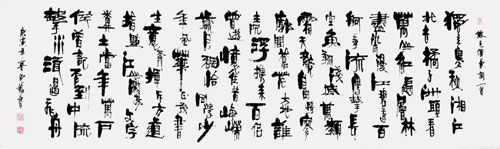 獨立寒秋湘江
北去橘子洲頭看
萬山紅遍層林
盡染漫江碧透百
舸爭流鷹擊長
空魚翔淺底萬類
霜天競自由悵
寥廓問蒼茫大地誰
主沉浮攜來百侶
曾遊憶往昔崢嶸
歲月稠恰同學少
年風華正茂書
生意氣揮斥方遒
指點江山激揚文字
糞土當年萬戶
侯曾記否到中流
擊水浪遏飛舟